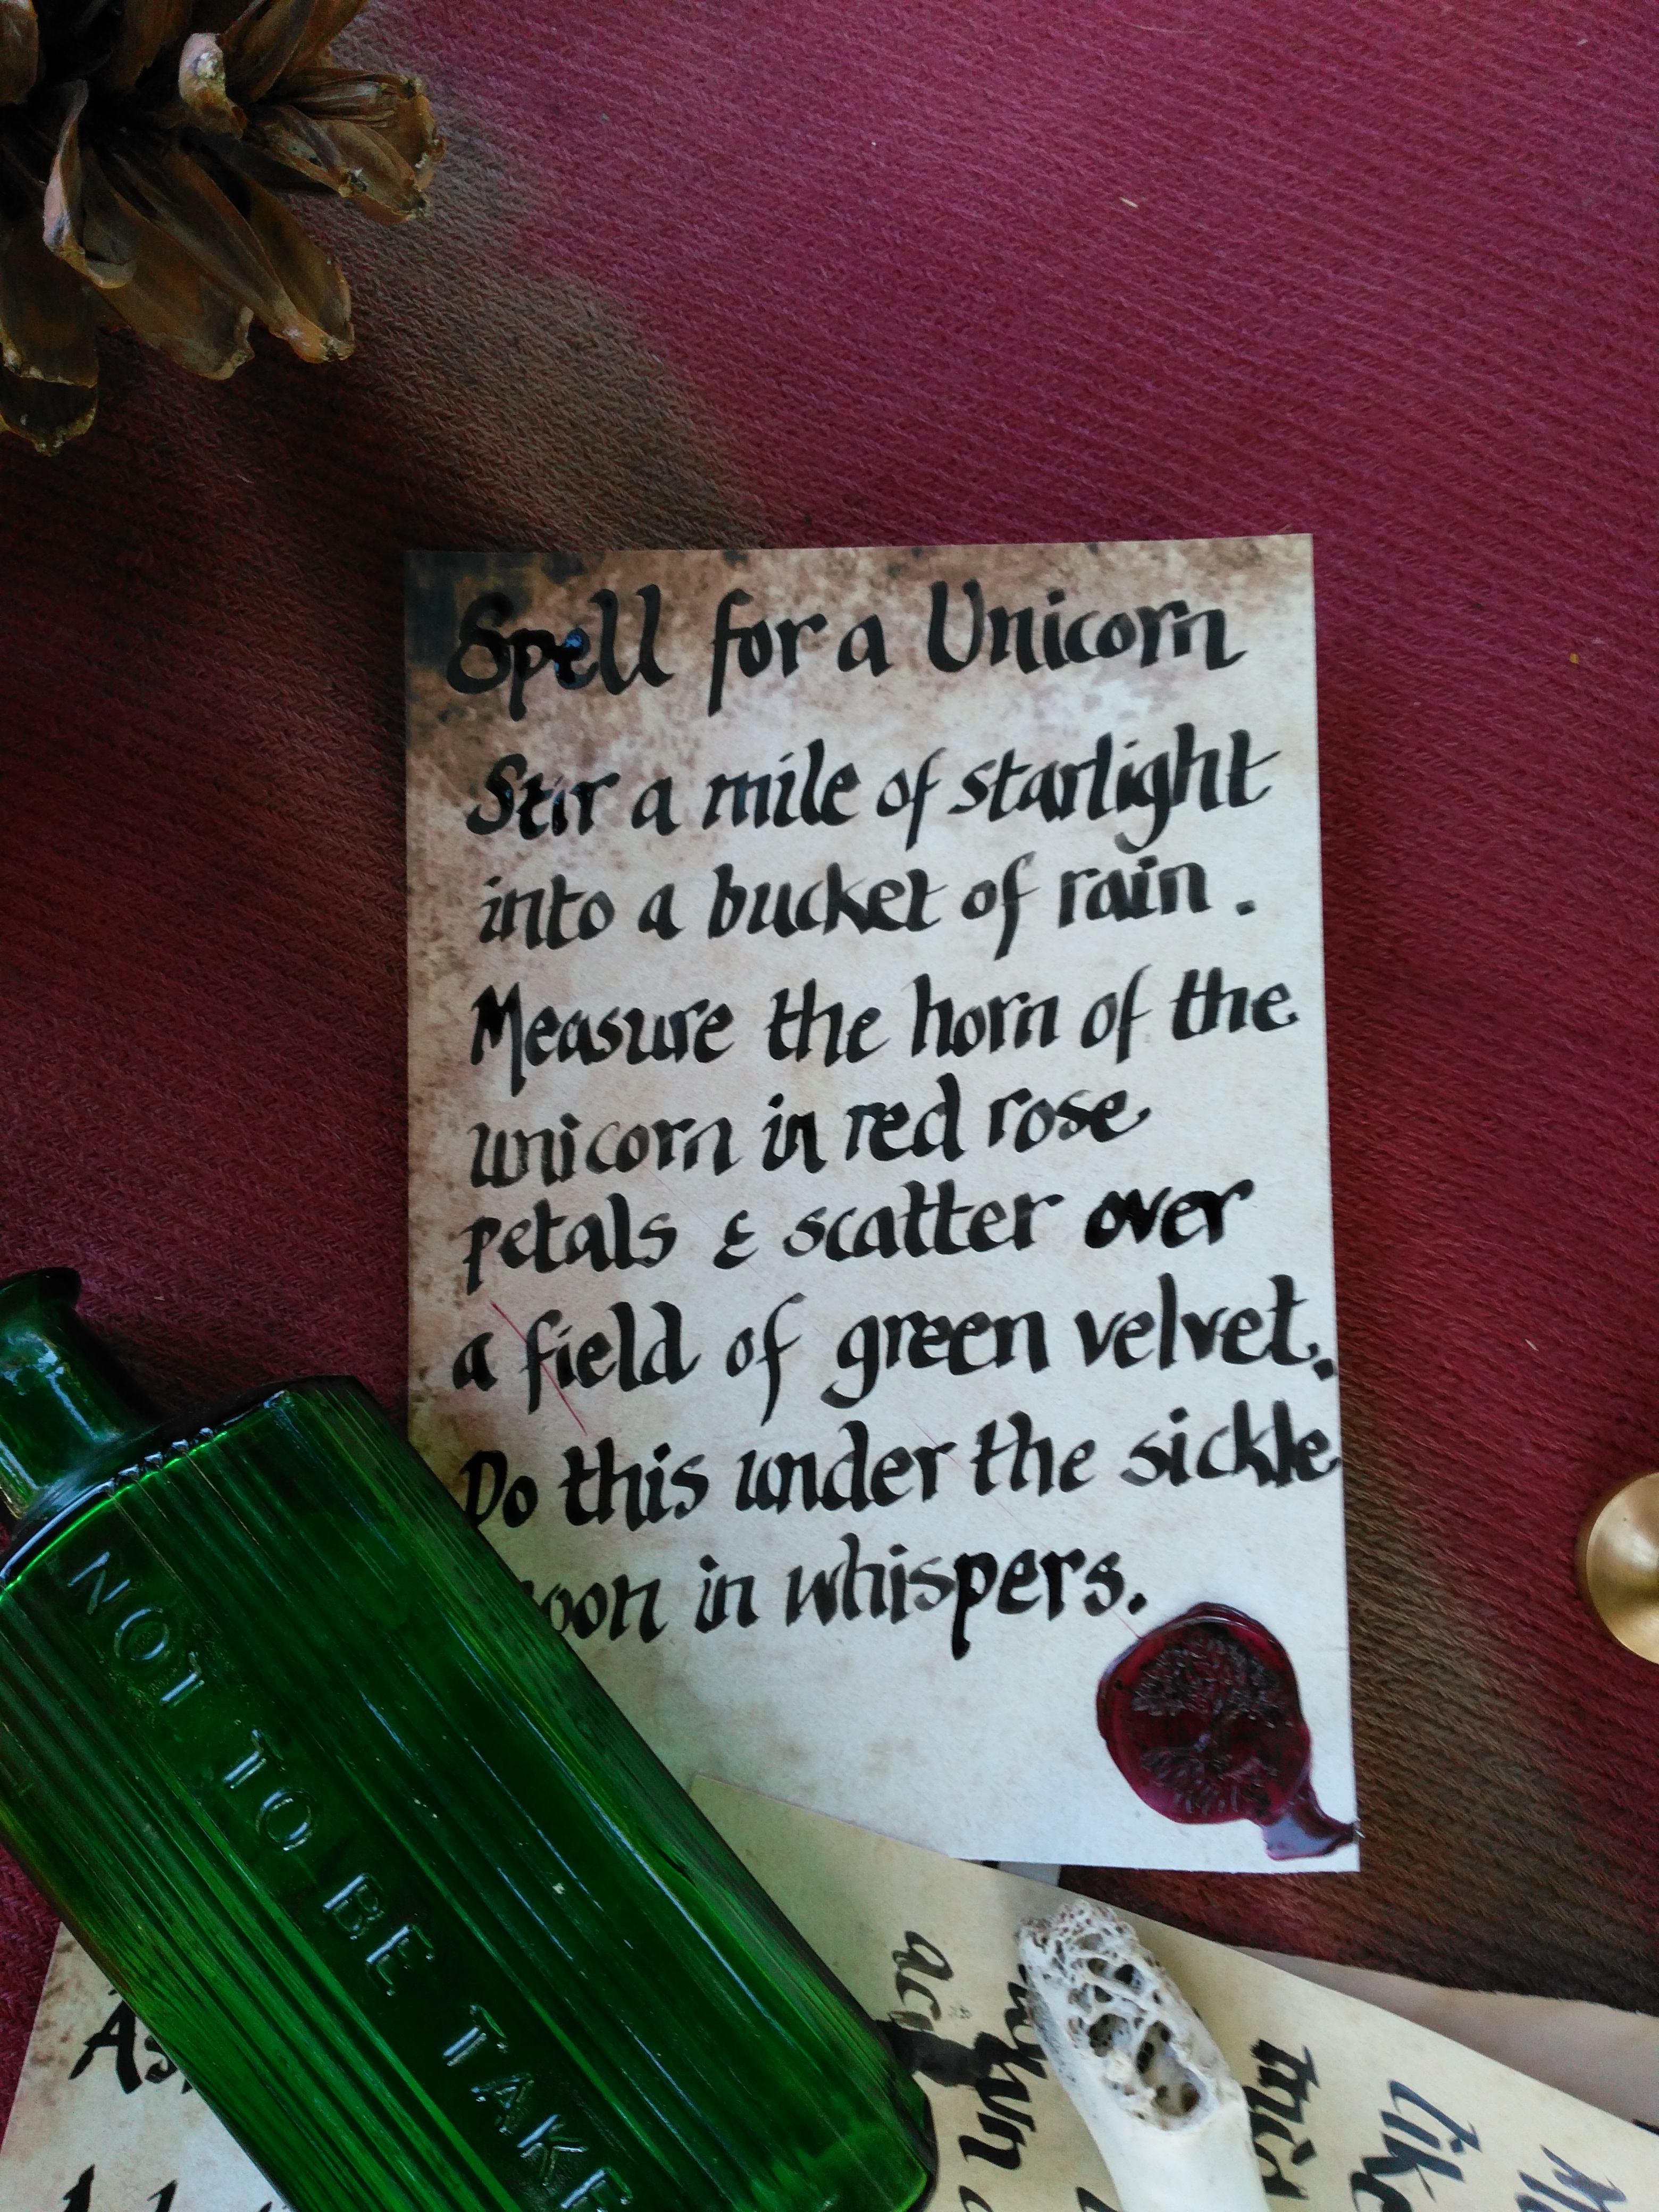 Spell for a Unicorn
Stir a mile of starlight
into a bucket of rain.
Measure the horn of the
unicorn in red rose
petals & scatter over
a field of green velvet.
Do this under the sickle
in whispers.
NOT TO BE TAKE
like